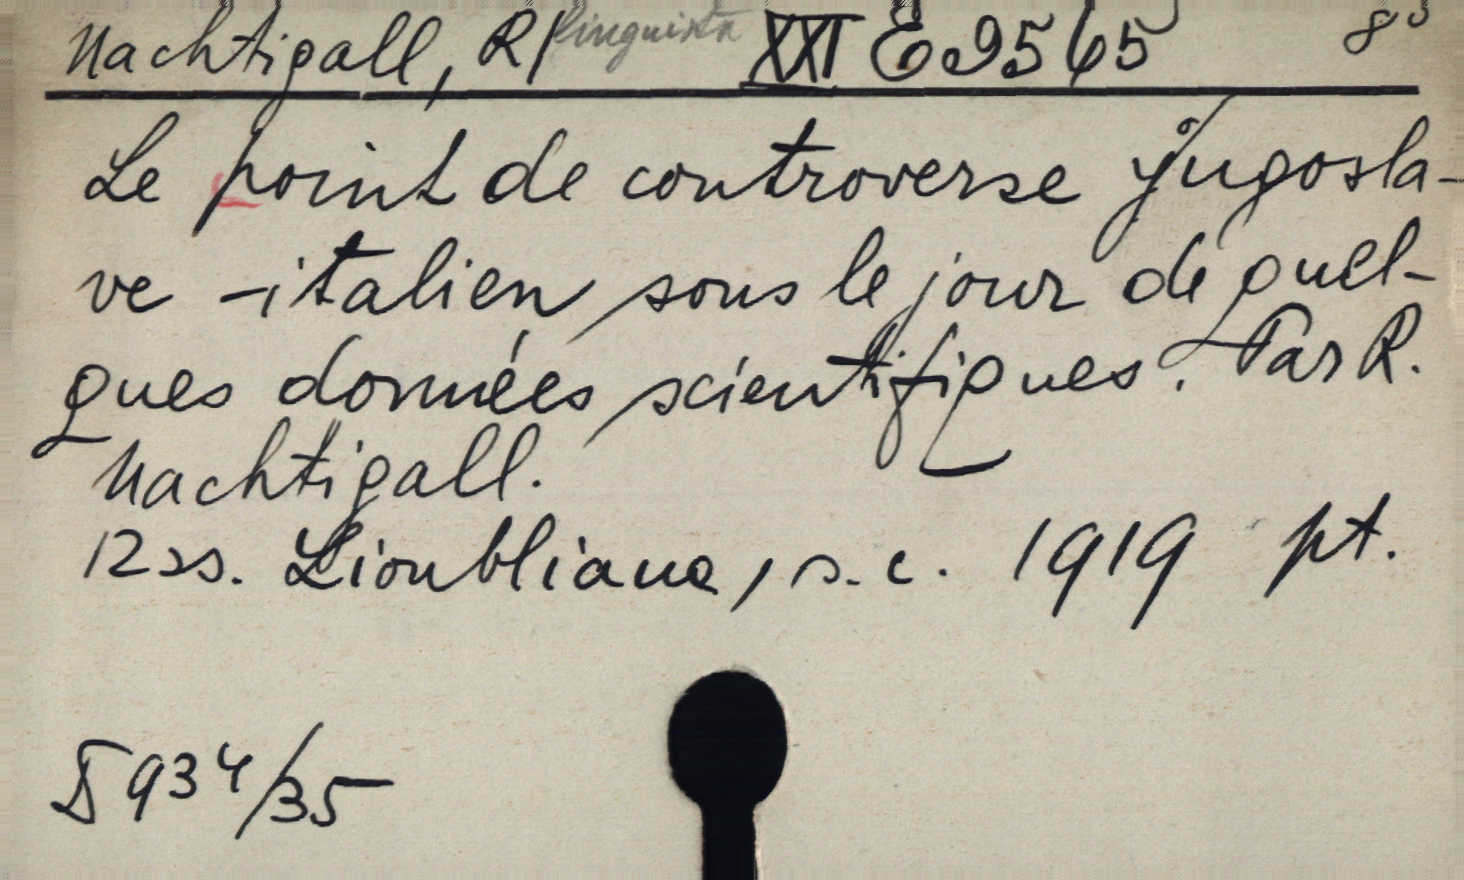 Nachtigall, R/ linguista XXI E 9565 8°
Le point de controverse jugosla-
ve -italien sous le jour de quel-
ques données scientifiques. Par R.
Nachtigall.
12 ss. Lioubliana, s. c. 1919 pt.
934/35